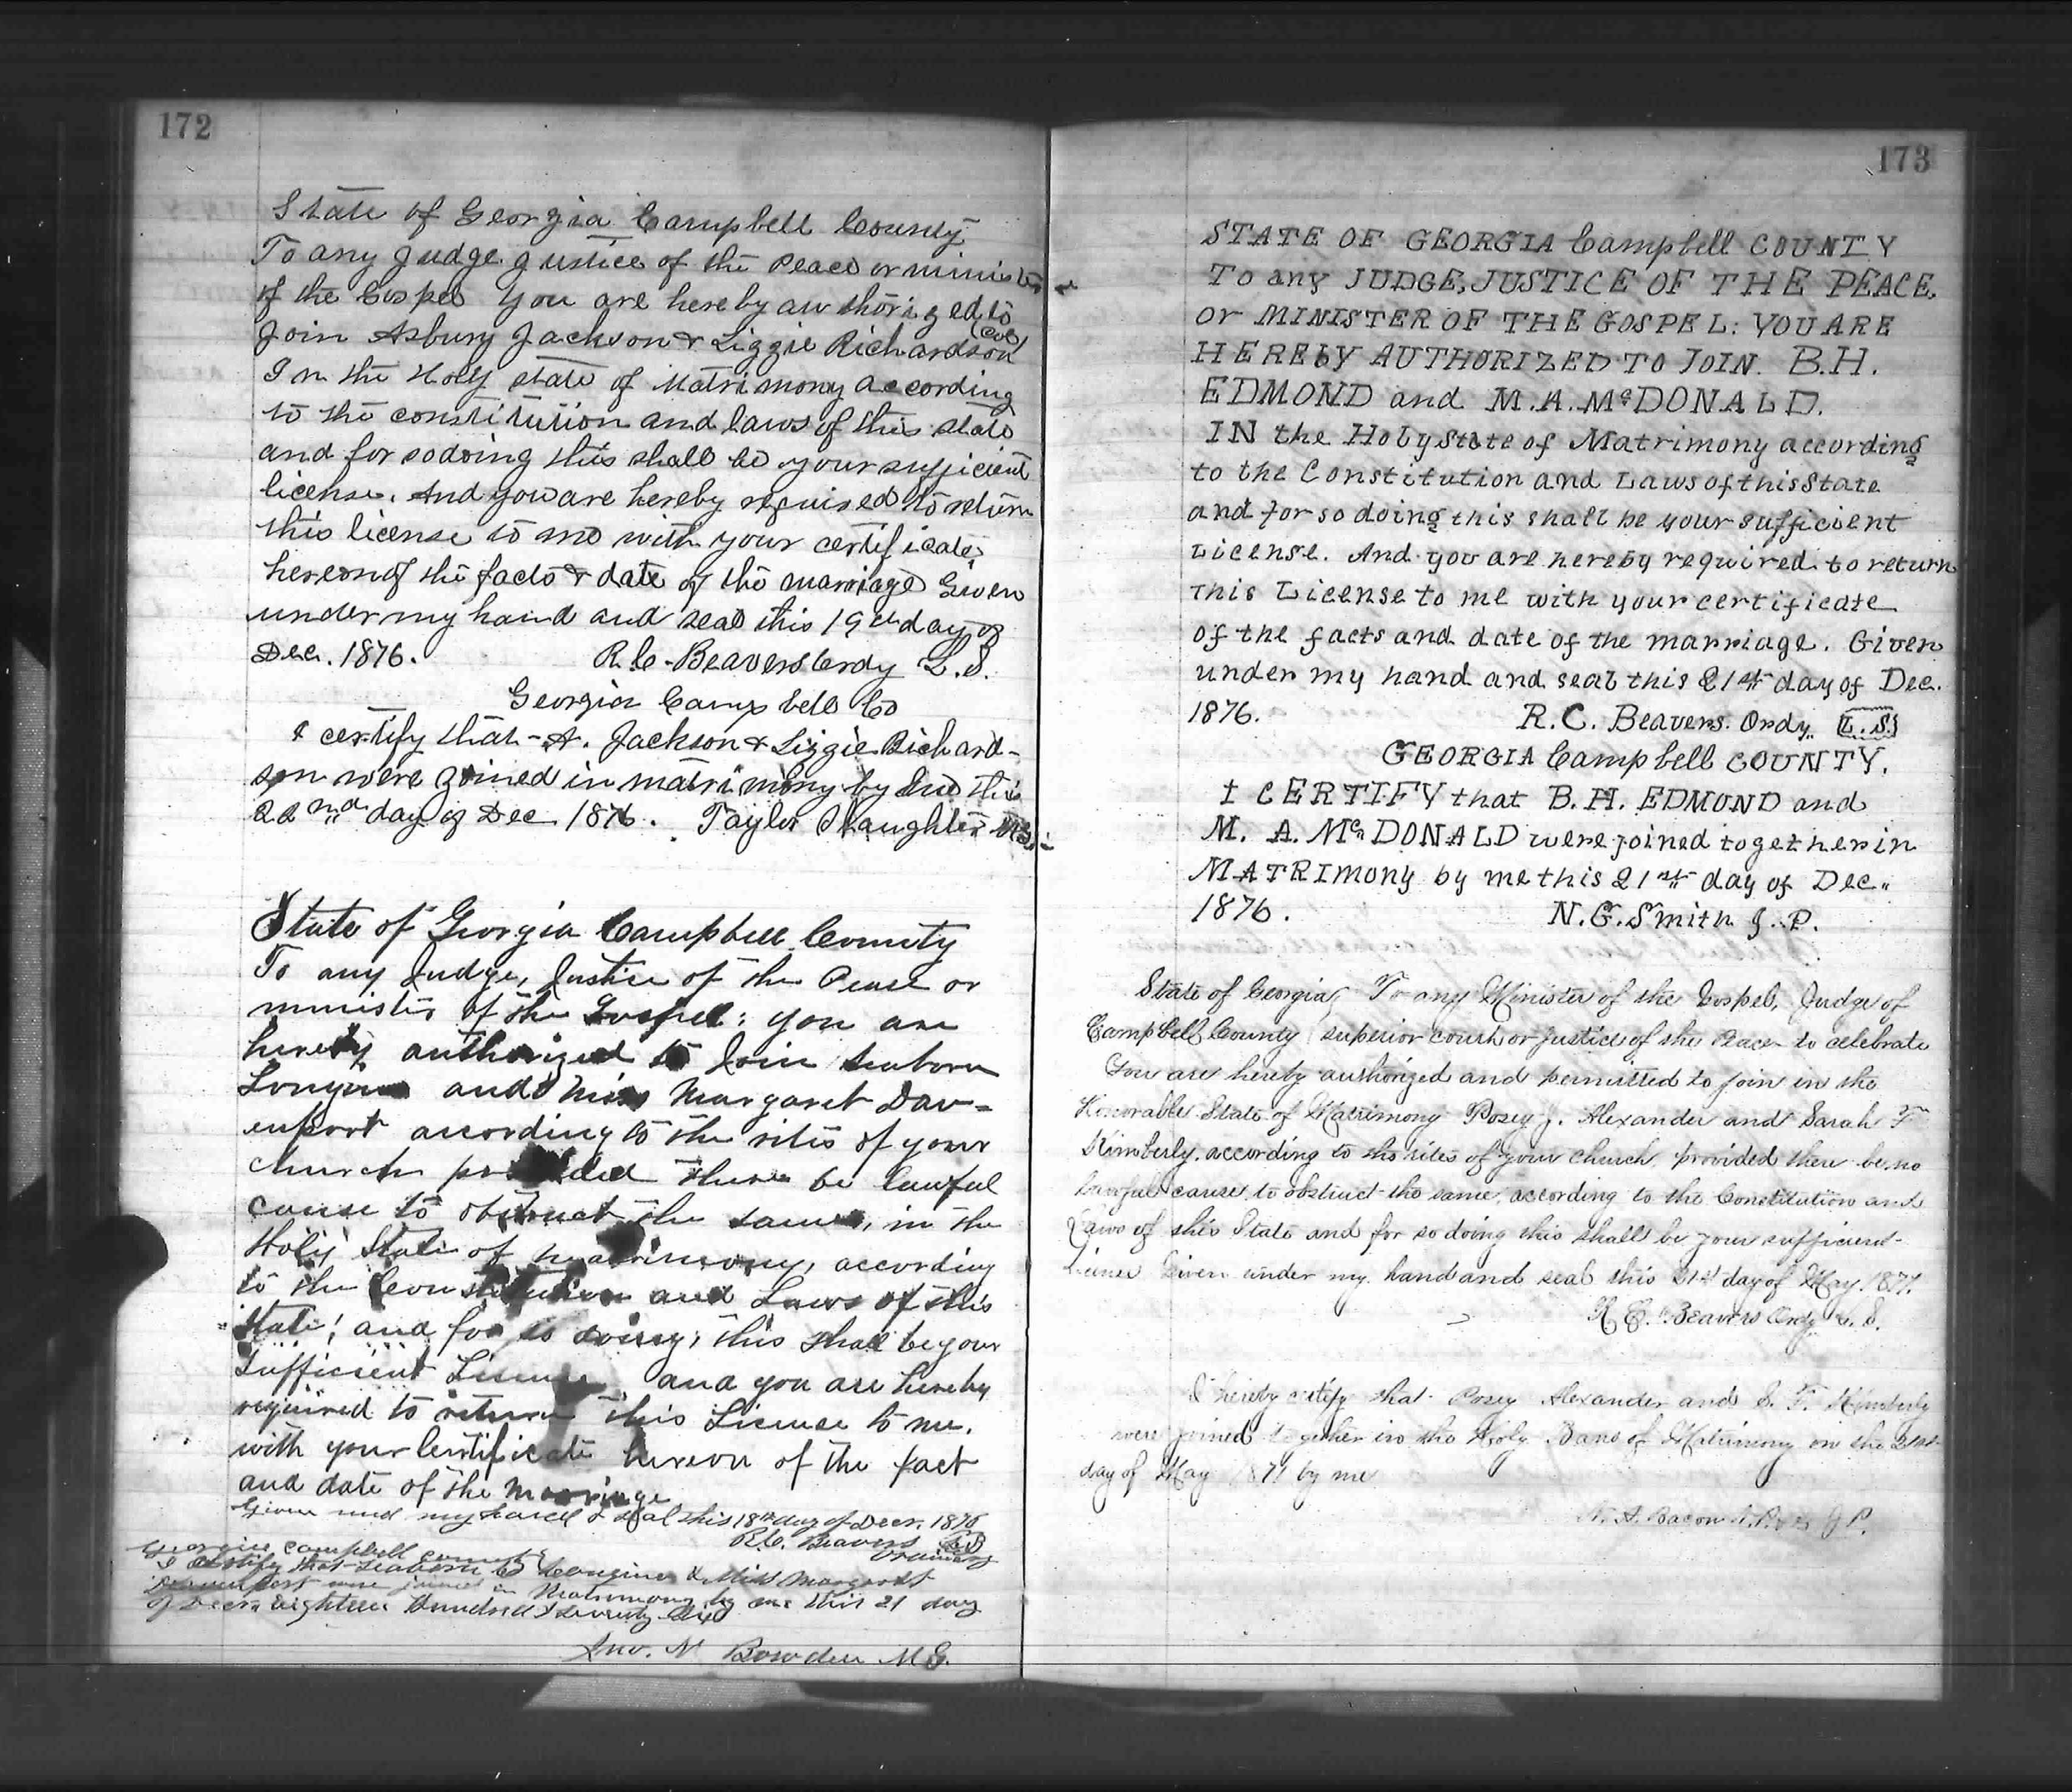 172
State of Georgia Campbell County
To any Judge Justice of the Peace or minister
of the Gospel You are hereby authorized to
Join Asbury Jackson & Lizzie Richardson (Col)
In the Holy state of Matrimony according
to the constitution and laws of this state
and for so doing this shall be your sufficient
license. And you are hereby required to return
this license to me with your certificate
hereon of the facts & date of the marriage Given
under my hand and seal this 19th day of
Dec. 1876. R. C. Beavers Ordy L. S.
Georgia Campbell Co
I certify that A. Jackson & Lizzie Richard-
son were joined in matrimony by me this
22nd day of Dec 1876. Taylor Slaughter M.G.
State of Georgia Campbell County
To any Judge, Justice of the Peace or
minister of the Gospel: you are
hereby authorized to Join Seaborn
Longino and Miss Margaret Dav-
enport according to the rites of your
church provided there be lawful
cause to obstruct the same, in the
Holy State of matrimony, according
to the Constitution and Laws of this
State; and for so doing, this shall be your
sufficient License and you are hereby
required to return this License to me,
with your Certificate hereon of the fact
and date of the Marriage
Given und my hand & seal this 18th day of Decr. 1876
R. C. Beavers LS
Ordinary
Georgia, Campbell county
I certify that Seaborn Longino & Miss Margaret
Davenport were joined in Matrimony by me this 21 day
of Decr. Eighteen Hundred & seventy six
Jno. N Bowden M G.
173
STATE OF GEORGIA Campbell COUNTY
To any JUDGE, JUSTICE OF THE PEACE,
or MINISTER OF THE GOSPEL: YOU ARE
HEREbY AUTHORIZED TO JOIN. B.H.
EDMOND and M.A. McDONALD.
IN the Holy State of Matrimony according
to the Constitution and Laws of this State
and for so doing this shall be your sufficient
License. And you are hereby required to return
This License to me with your certificate
of the facts and date of the marriage. Given
under my hand and seal this 21st day of Dec.
1876. R. C. Beavers. Ordy. L. S.
GEORGIA Campbell COUNTY.
I CERTIFY that B. H. EDMOND and
M. A. McDONALD were joined together in
MATRIMONY by me this 21st day of Dec.
1876. N. G. Smith J. P.
State of Georgia To any Minister of the Gospel, Judge of
Campbell County superior court or Justice of the Peace to celebrate
You are hereby authorized and permitted to join in the
Honorable State of Matrimony Posey J. Alexander and Sarah F
Kimberly, according to the rites of your church, provided there be no
lawful cause to obstruct the same, according to the Constitution and
Laws of this State and for so doing this shall be your sufficient
License Given under my hand and seal this 21st day of May. 1877.
R. C. Beavers Ordy L. S.
I hereby certify that Posey Alexander and S. F. Kimberly
were joined together in the Holy Bans of Matrimony on the 21st
day of May 1877 by me
A. Bacon J P.